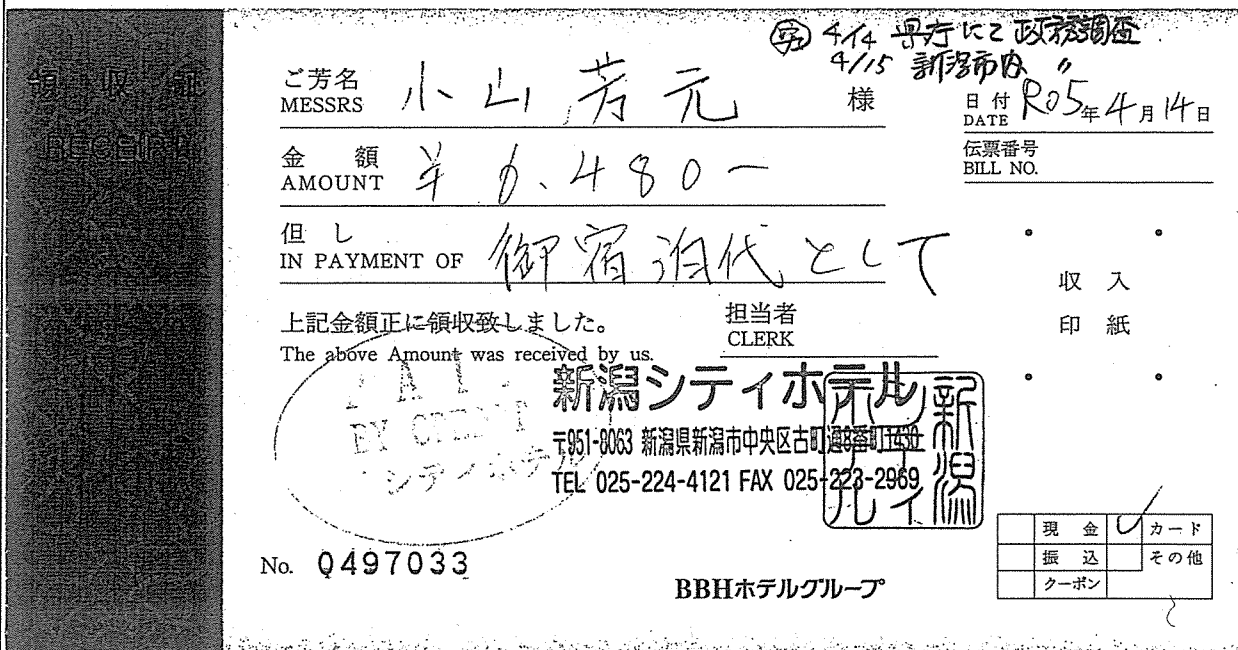 領収証
RECEIPT
4/14 県庁にて政務調査
4/15 新潟市内 〃
ご芳名
MESSRS 小山芳元 様
日付
DATE R05年4月14日
金額
AMOUNT ¥6,480-
伝票番号
BILL NO.
但し
IN PAYMENT OF 御宿泊代として
収入
印紙
上記金額正に領収致しました。
The above Amount was received by us.
担当者
CLERK
BY CREDIT
シティホテル
新潟シティホテル
〒951-8063 新潟県新潟市中央区古町通8番町1430
TEL 025-224-4121 FAX 025-223-2969
新潟シティホテル
No. 0497033
BBHホテルグループ
現金 ✓ カード
振込 その他
クーポン